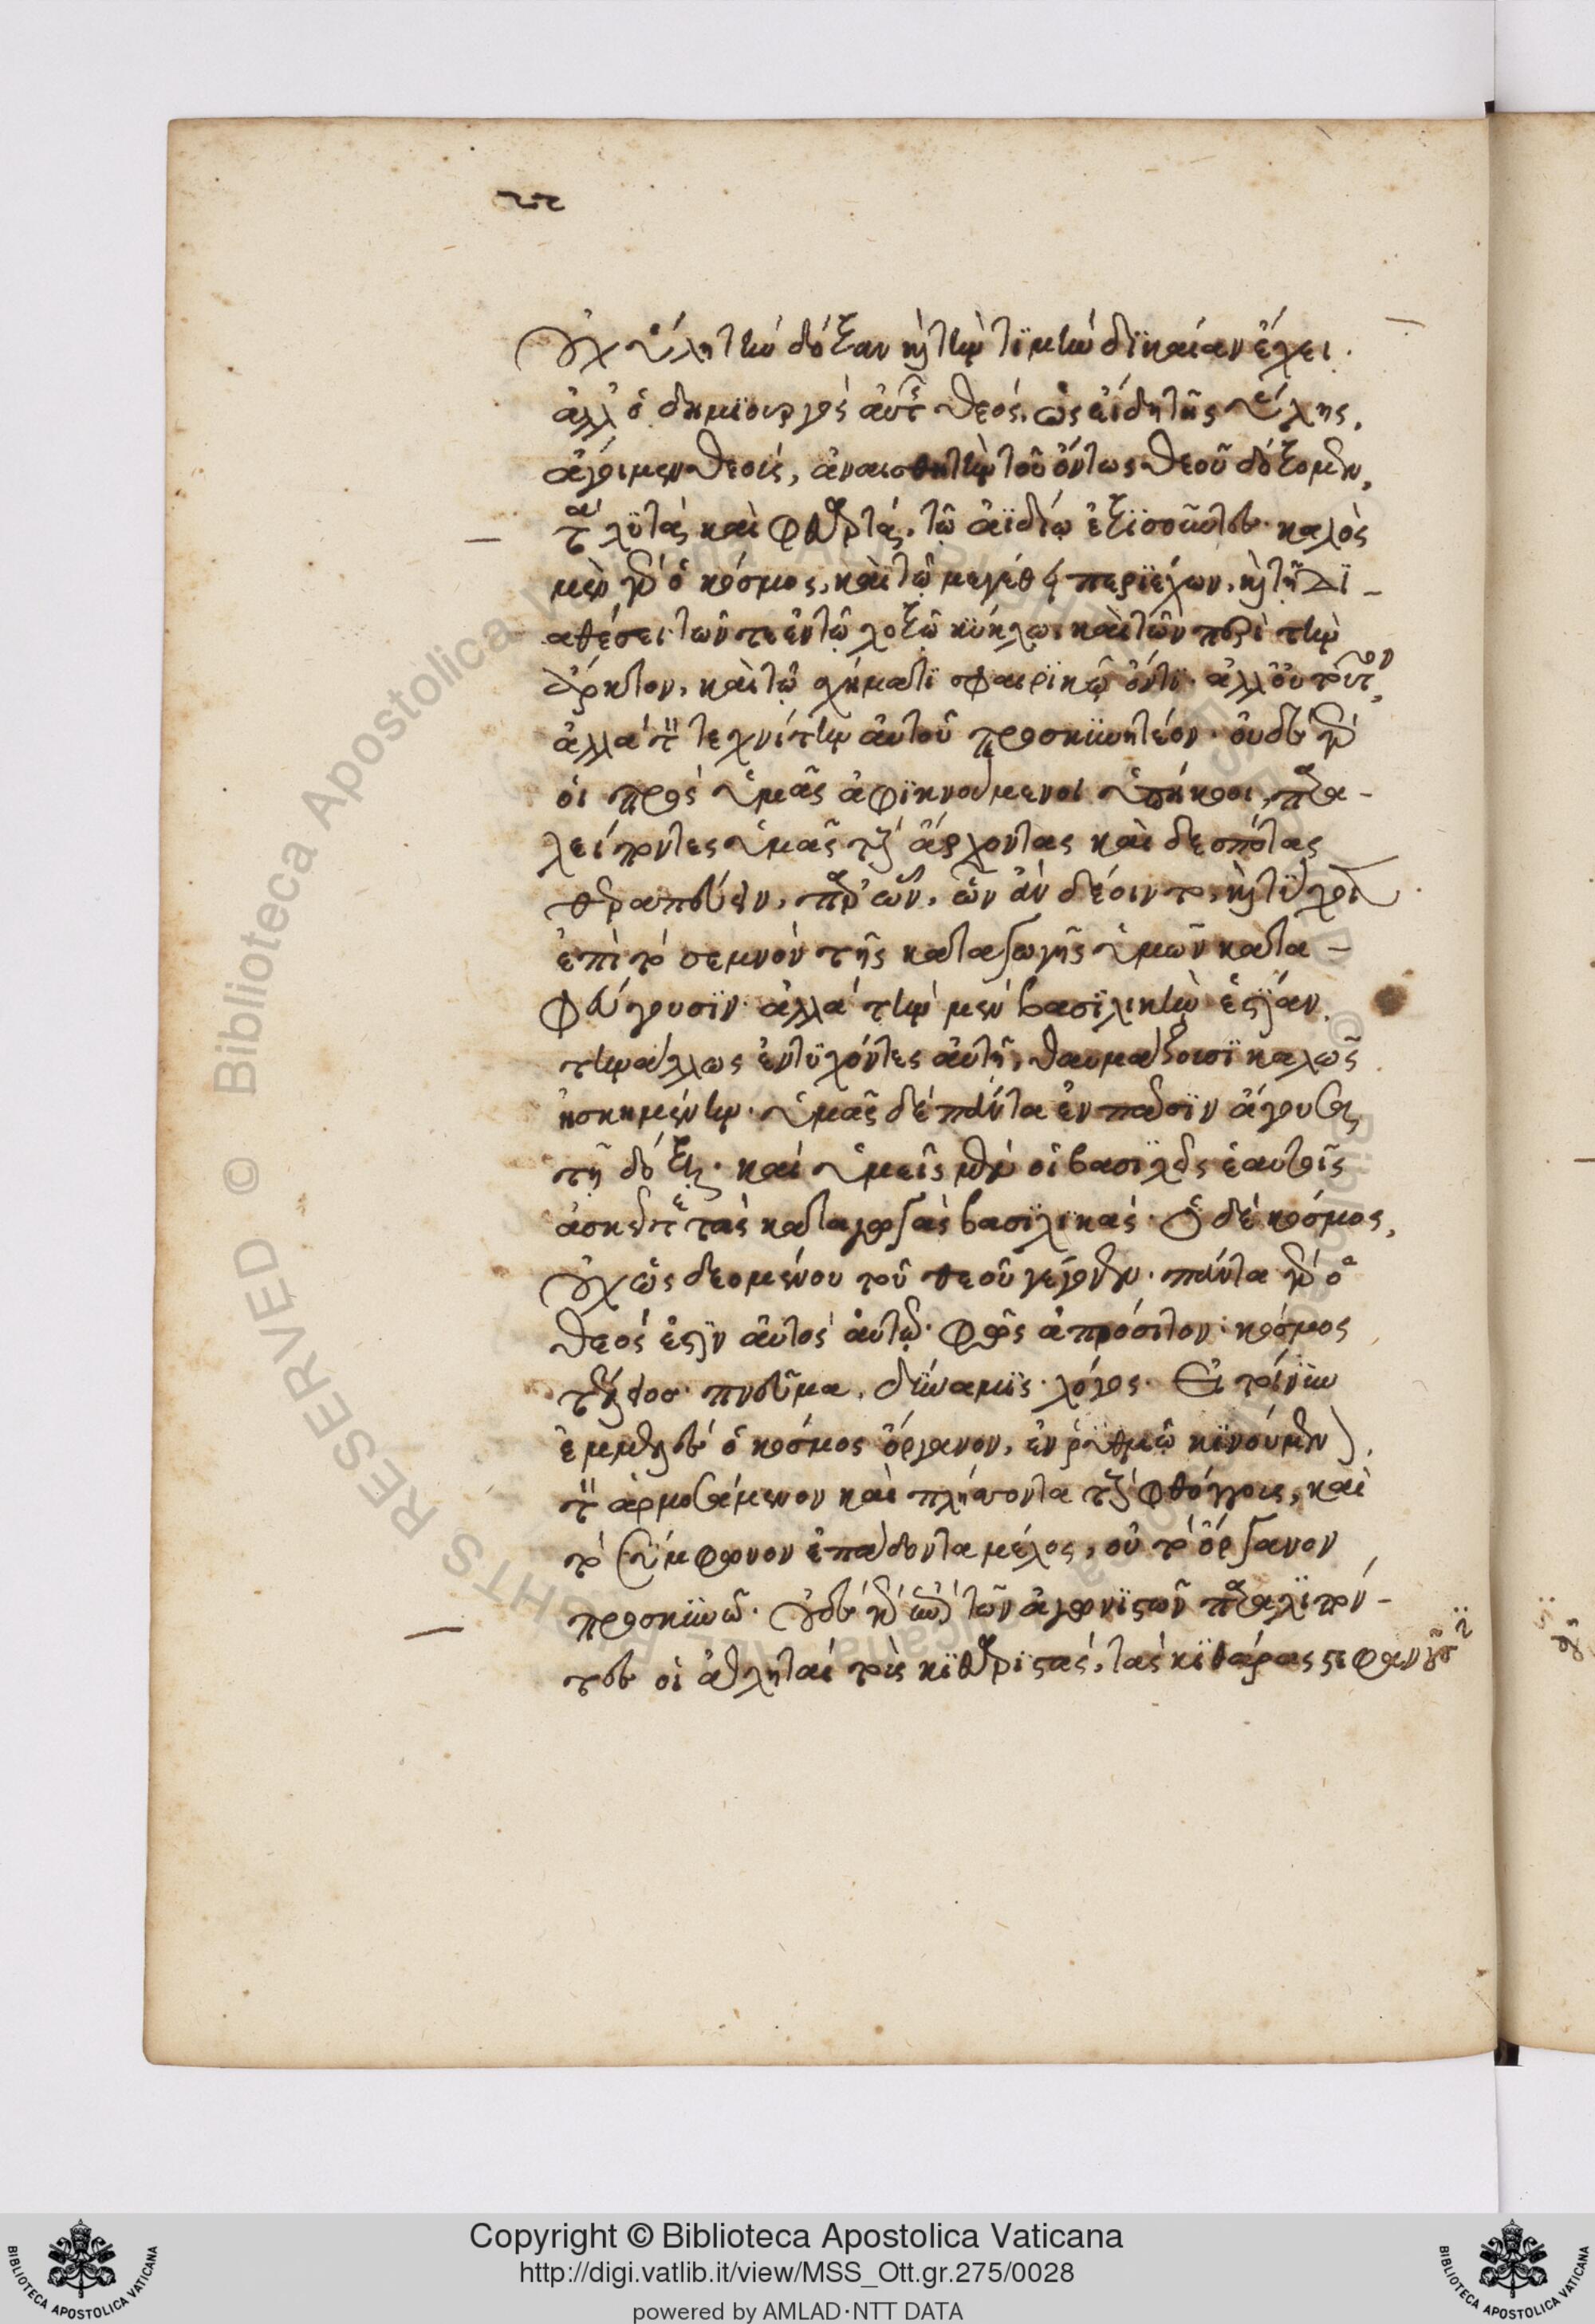 οὐχ ὕλη τὴν δόξαν καὶ τὴν τϊμὴν δϊκαίαν ἔχει.
ἀλλ' ὁ δημϊουργὸς αὐτῆς θεός. ὡς εἰ δὴ τῆς ὕλης,
ἄγοιμεν θεοὺς, ἀναισθητεῖν τοῦ ὄντως θεοῦ δόξομεν,
τὰ λϋτὰ καὶ φθαρτὰ, τῷ ἀϊδίῳ ἐξϊσοῦντες. καλὸς
μὲν γὰρ ὁ κόσμος, καὶ τῷ μεγέθει περϊέχων, καὶ τῇ δϊ-
αθέσει τῶν τε ἐν τῷ λοξῷ κύκλῳ καὶ τῶν περὶ τὴν
ἄρκτον, καὶ τῷ σχήματϊ σφαιρϊκῷ ὄντϊ. ἀλλ' οὐ τοῦτον,
ἀλλὰ τὸν τεχνίτην αὐτοῦ προσκϋνητέον. οὐδὲ γὰρ
οἱ πρὸς ὑμᾶς ἀφϊκνούμενοι ὑπήκοοι, παρα-
λείποντες ὑμᾶς τοὺς ἄρχοντας καὶ δεσπότας
θεραπεύειν, παρ' ὧν, ὧν ἂν δέοιντο, καὶ τύχοιεν
ἐπὶ τὸ σεμνὸν τῆς καταγωγῆς ὑμῶν κατα-
φεύγουσϊν. ἀλλὰ τὴν μὲν βασϊλικὴν ἑστίαν,
τὴν ἄλλως ἐντϋχόντες αὐτῇ, θαυμάζουσϊ καλῶς
ἠσκημένην. ὑμᾶς δὲ πάντα ἐν πᾶσϊν ἄγουσι
τῇ δόξῃ. καὶ ὑμεῖς μὲν οἱ βασϊλεῖς ἑαυτοῖς
ἀσκεῖτε τὰς καταγωγὰς βασϊλϊκάς. ὁ δὲ κόσμος,
οὐχ ὡς δεομένου τοῦ θεοῦ γέγονεν. πάντα γὰρ ὁ
θεός ἐστϊν αὐτὸς αὑτῷ. φῶς ἀπρόσιτον. κόσμος
τέλειος. πνεῦμα. δύναμϊς. λόγος. Εἰ τοίνϋν
ἐμμελὲς ὁ κόσμος ὄργανον, ἐν ῥυθμῷ κϊνούμενον,
τὸν ἁρμοσάμενον καὶ πλήσσοντα τοὺς φθόγγους, καὶ
τὸ σύμφωνον ἐπάδοντα μέλος, οὐ τὸ ὄργανον
προσκϋνῶ. οὐδὲ γὰρ ἐπὶ τῶν ἀγωνϊστῶν παραλϊπόν-
τες οἱ ἀθληταὶ τοὺς κϊθαρϊστὰς, τὰς κϊθάρας στεφανοῦσϊ